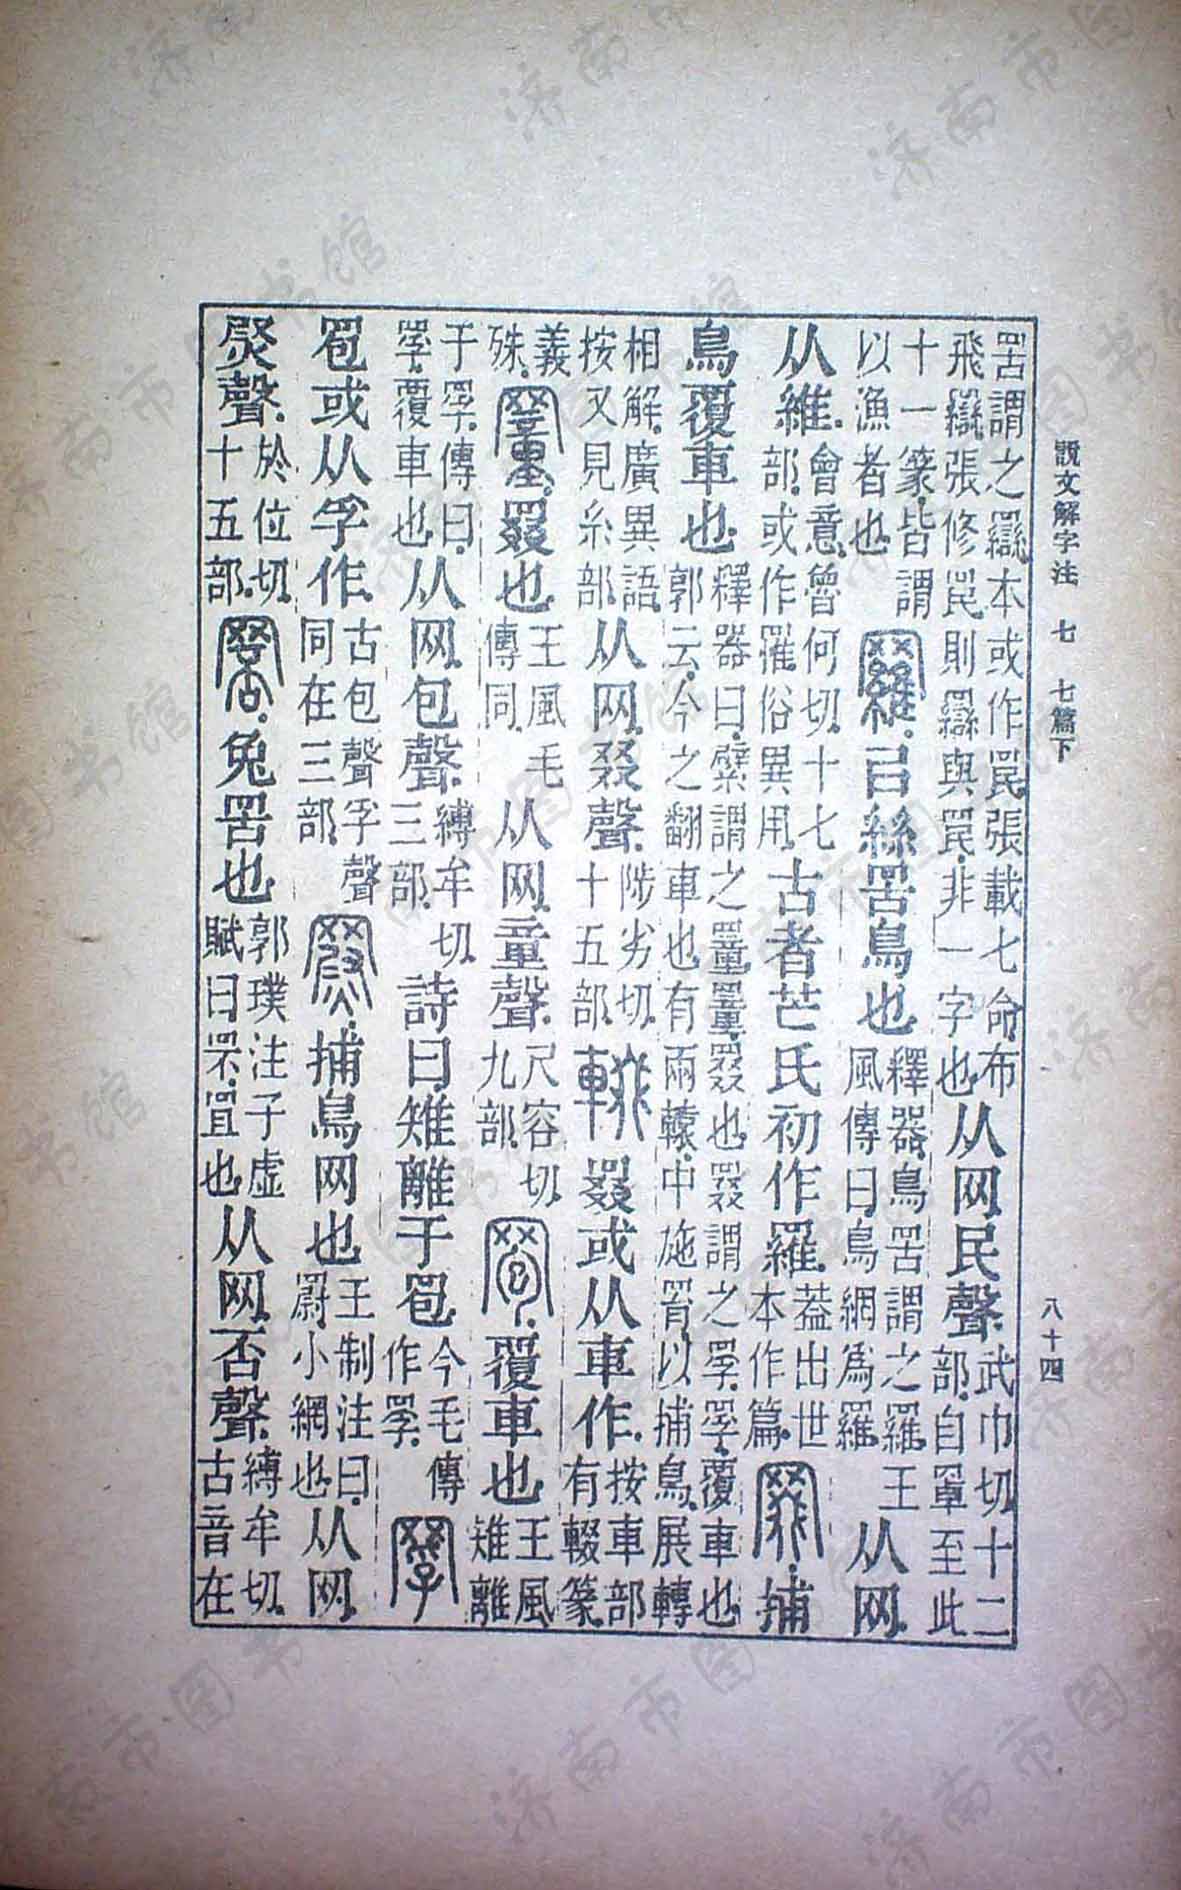 說文解字注 七 七篇下
八十四
罟謂之羉本或作罠張載七命布飛羉張修罠則羉與罠非一字也从网民聲武巾切十二部自罩至此
十一篆皆謂以漁者也羅㠯絲罟鳥也釋器鳥罟謂之羅王風傳曰鳥網爲羅从网
从維會意魯何切十七部或作罹俗異用古者芒氏初作羅葢出世本作篇罬捕
鳥覆車也釋器曰繴謂之罿罿罬也罬謂之罦罦覆車也郭云今之翻車也有兩轅中施罥以捕鳥展轉
相解廣異語按又見糸部从网叕聲陟劣切十五部輟罬或从車作按車部有輟篆
義殊罿罬也王風毛傳同从网童聲尺容切九部䍖覆車也王風雉離
于罦傳曰罦覆車也从网包聲縛牟切三部詩曰雉離于䍖今毛傳作罦罦
䍖或从孚作古包聲孚聲同在三部罻捕鳥网也王制注曰罻小網也从网
尉聲於位切十五部罘兔罟也郭璞注子虛賦曰罘罝也从网否聲縛牟切古音在
济南市图书馆